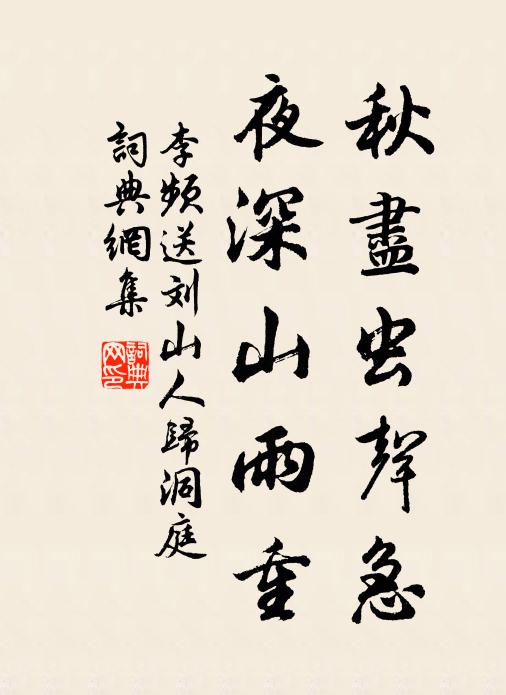 秋盡虫聲急
夜深山雨重
李频送刘山人歸洞庭
詞典網集
詞典
网印